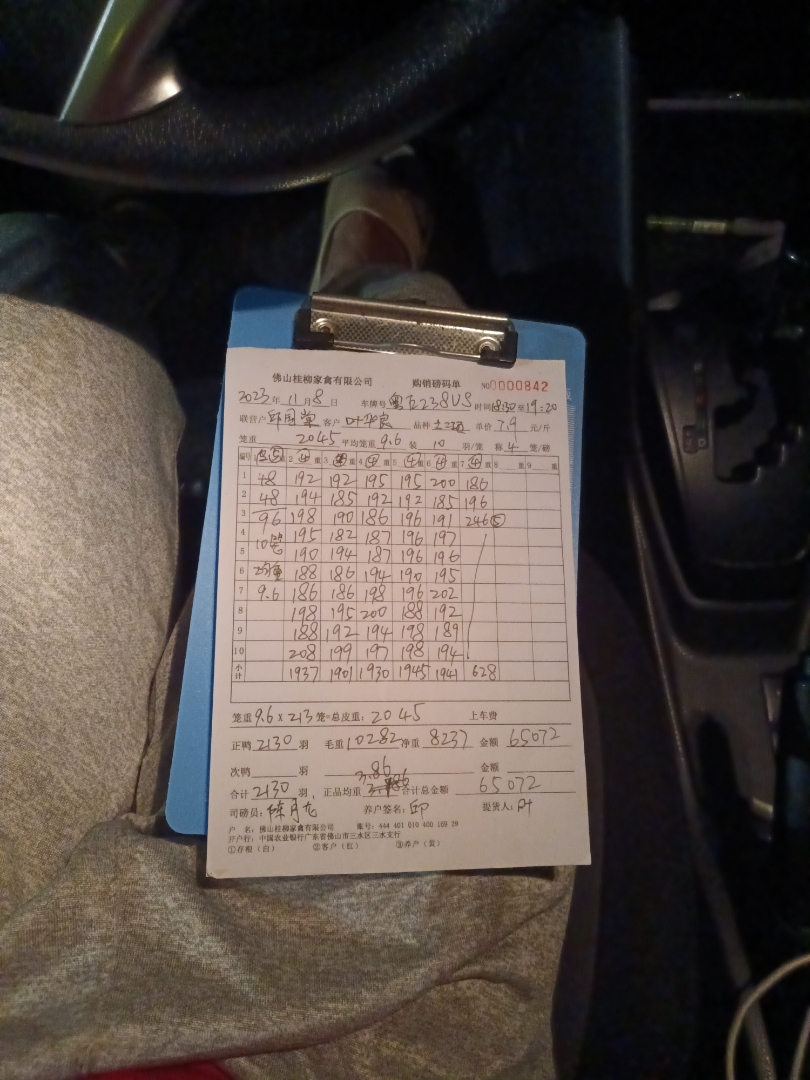 佛山桂柳家禽有限公司 购销磅码单 NO0000842
2023年 11月8日 车牌号 粤E238VS 时间18:30至19:20
联营户 客户 叶 品种 土二 单价 7.9 元/斤
笼重 2045 平均笼重 9.6 装 10 羽/笼 称 4 笼/磅
编号 重 2 ④ 重 3 ④ 重 4 ④ 重 5 ④ 重 6 ④ 重 7 ④ 重 8 重 9 重
1 48 192 192 195 195 200 186
2 48 194 185 192 192 185 196
3 96 198 190 186 196 191 246⑤
4 10笼 195 182 187 196 197
5 190 194 187 196 196
6 188 186 194 190 195
7 9.6 186 186 198 196 202
8 198 195 200 188 192
9 188 192 194 198 189
10 208 199 197 198 194
小计 1937 1901 1930 1945 1941 628
笼重 9.6 x 213 笼=总皮重: 2045 上车费
正鸭 2130 羽 毛重 10282 净重 8237 金额 65072
次鸭 羽 金额
合计 2130 羽, 正品均重 3.86 合计总金额 65072
司磅员: 陈月 养户签名: 邱 提货人: 叶
户 名: 佛山桂柳家禽有限公司 账号: 444 401 010 400 169 29
开户行: 中国农业银行广东省佛山市三水区三水支行
①存根(白) ②客户(红) ③养户(黄)